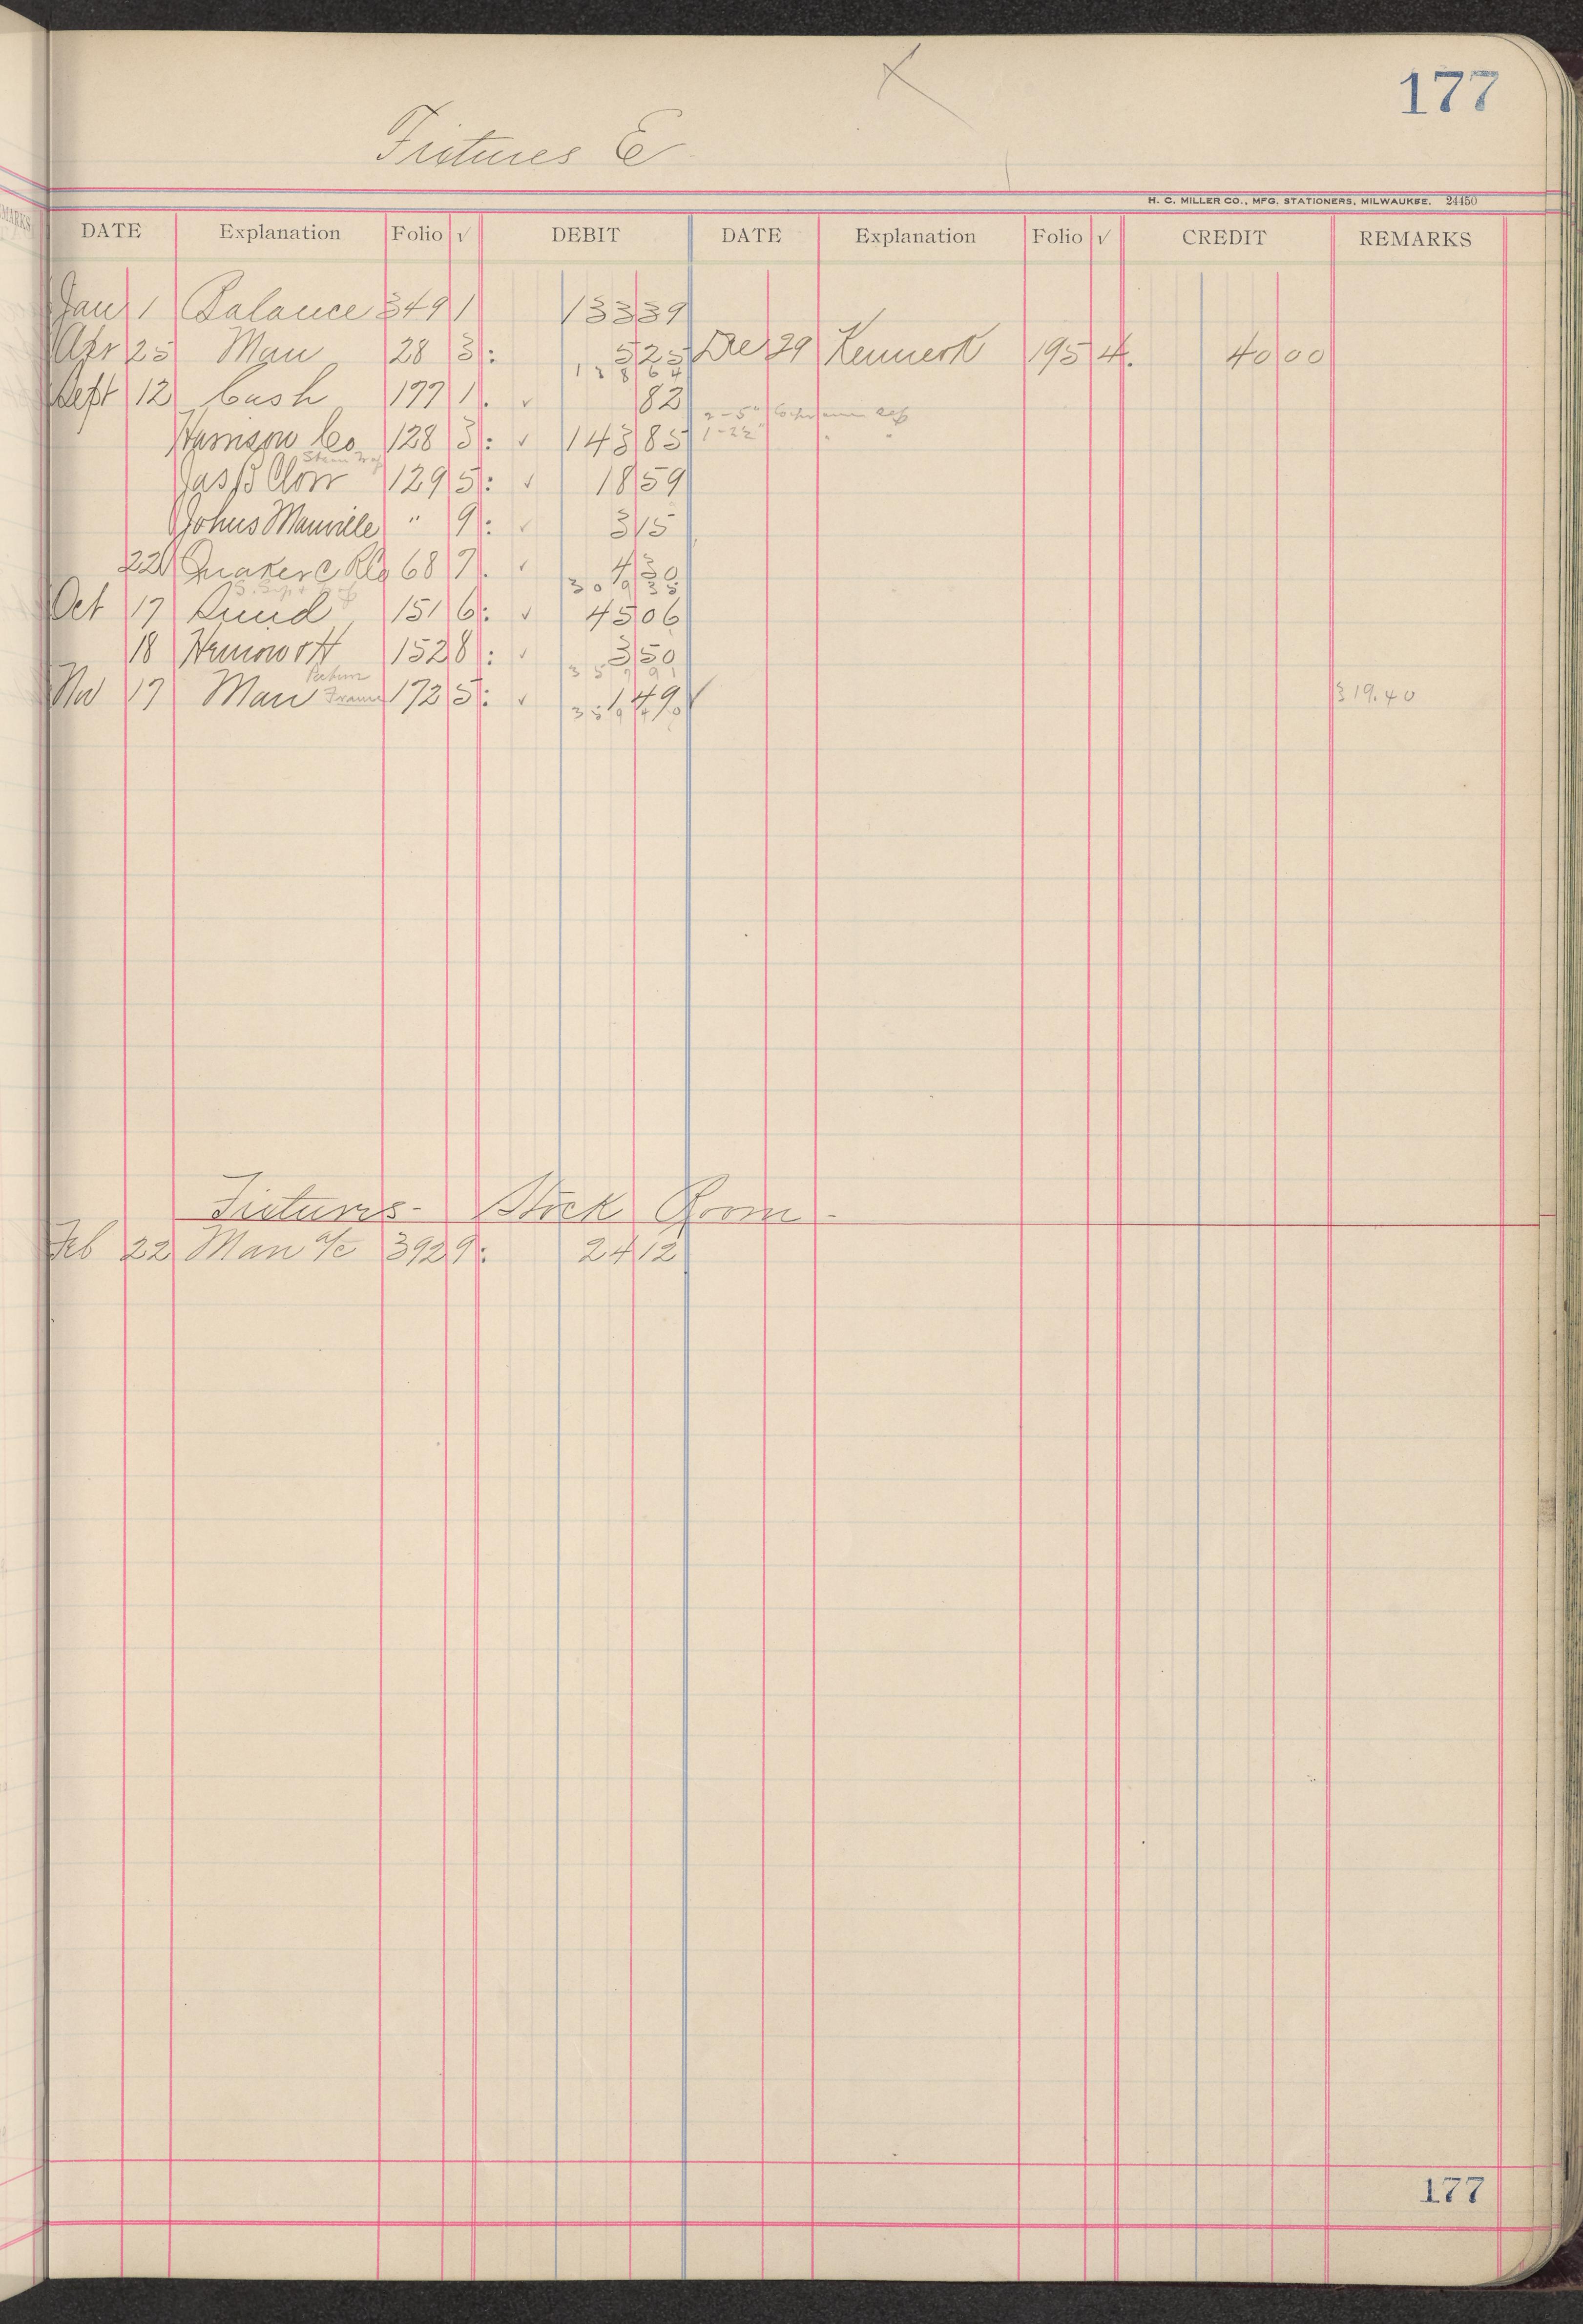 177
Fixtures E
H. C. MILLER CO., MFG. STATIONERS, MILWAUKEE. 24450
DATE Explanation Folio √ DEBIT DATE Explanation Folio √ CREDIT REMARKS
Jan 1 Balance 349 1 133 39
Apr 25 Man 28 3: 5 25 Dec 29 Kennerk 195 4. 40 00
138 64
Sept 12 Cash 177 1. √ 82
2-5"
Harrison Co 128 3: √ 143 85 1-2½" " "
Steam Trap
Jas B Clow 129 5: √ 18 59
Johns Manville " 9: √ 3 15
22 Quaker C 68 7. √ 4 30
309 35
Oct 17 Lund 151 6: √ 45 06
18 152 8: √ 3 50
357 91
Nov 17 Man Picture Frame 172 5: √ 1 49 √
359 40
319.40
Fixtures - Stock Room -
Feb 22 Man a/c 392 9: 24 12
177